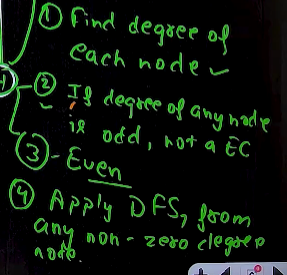 ① Find degree of
each node ✓
② If degree of any node
is odd, not a EC
③ - Even
④ Apply DFS, from
any non-zero degree
node.